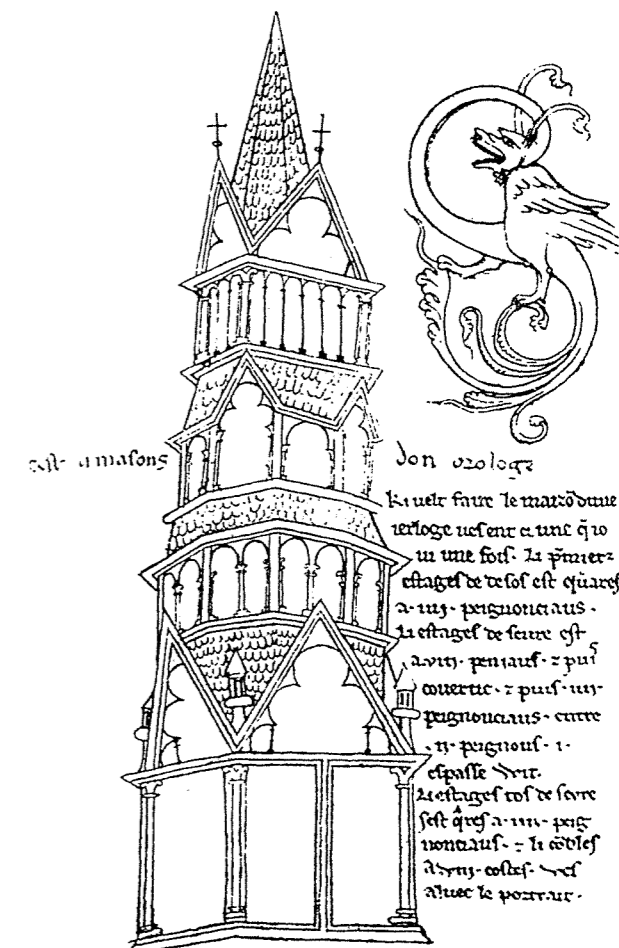 cest li masons don orologe
Ki velt faire le maizō dune
ierloge ves ent ci une q̄ io
vi une fois. Li p̄miers
estages de desos est quares
a .iiii. peignonciaus.
Li estages de seure est
a .viii. peniaus. z puis
covertic. z puis .iiii.
peignonciaus. entre
.ii. peignons. .i.
espasse wit.
Li estages tos de seure
sest q̄res a .iiii. peig
nonciaus. z li cōbles
a .viii. costes. ves
aluec le portrait.